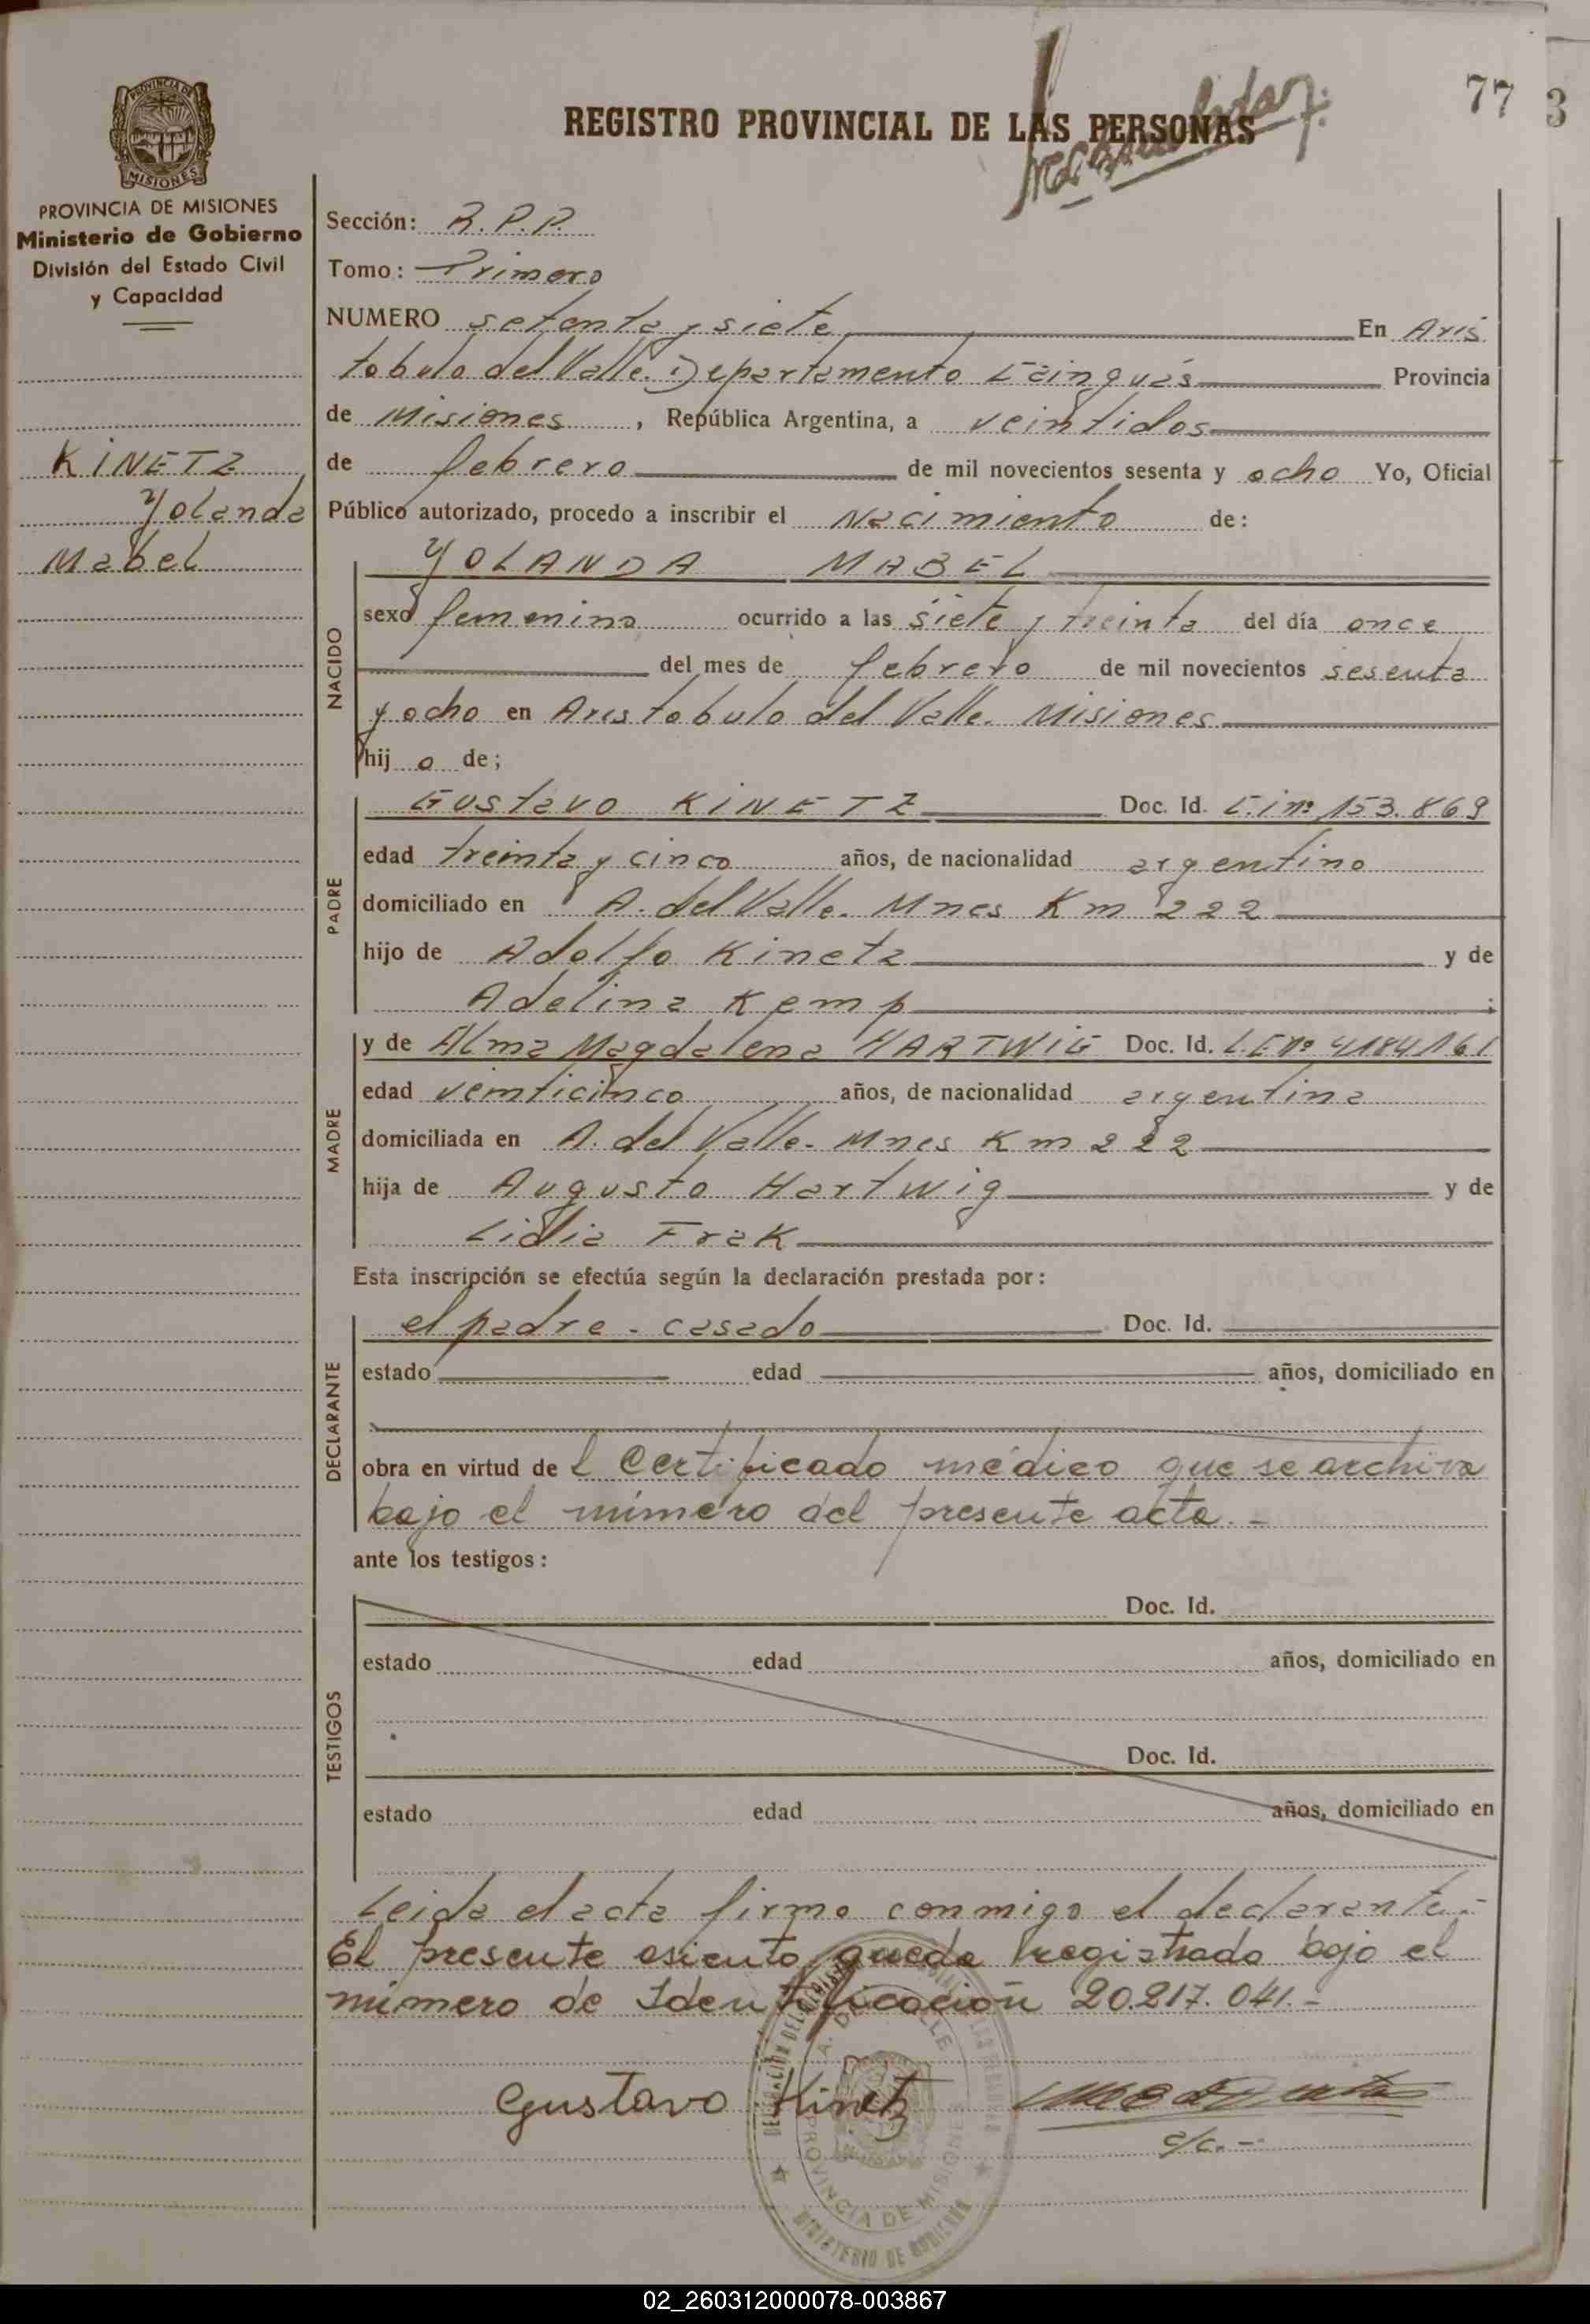 77 3
REGISTRO PROVINCIAL DE LAS PERSONAS
PROVINCIA DE
MISIONES
PROVINCIA DE MISIONES
Ministerio de Gobierno
División del Estado Civil
y Capacidad
KINETZ
Yolanda
Mabel
Sección: R.P.P.
Tomo: Primero
NUMERO setenta y siete En Aris
tobulo del Valle. Departamento Cainguás Provincia
de Misiones, República Argentina, a veintidos
de febrero de mil novecientos sesenta y ocho Yo, Oficial
Público autorizado, procedo a inscribir el Nacimiento de:
NACIDO
YOLANDA MABEL
sexo femenino ocurrido a las siete y treinta del día once
del mes de febrero de mil novecientos sesenta
y ocho en Aristobulo del Valle. Misiones
hij o de;
PADRE
Gustavo KINETZ Doc. Id. C.i nº 153.869
edad treinta y cinco años, de nacionalidad argentino
domiciliado en A. del Valle. Mnes Km 222
hijo de Adolfo Kinetz y de
Adelina Kemp;
MADRE
y de Alma Magdalena HARTWIG Doc. Id. L.C nº 4184161
edad veinticinco años, de nacionalidad argentina
domiciliada en A. del Valle- Mnes Km 222
hija de Augusto Hartwig y de
Lidia Frak
Esta inscripción se efectúa según la declaración prestada por:
DECLARANTE
el padre - casado Doc. Id.
estado edad años, domiciliado en
obra en virtud de l Certificado médico que se archiva
bajo el número del presente acta.-
ante los testigos:
TESTIGOS
Doc. Id.
estado edad años, domiciliado en
Doc. Id.
estado edad años, domiciliado en
Leida el acta firma conmigo el declarante.-
El presente asiento queda registrado bajo el
número de Identificación 20.217.041.-
Gustavo Kinetz
c/c.-
A. DEL VALLE
PROVINCIA DE MISIONES
MINISTERIO DE GOBIERNO
02_260312000078-003867